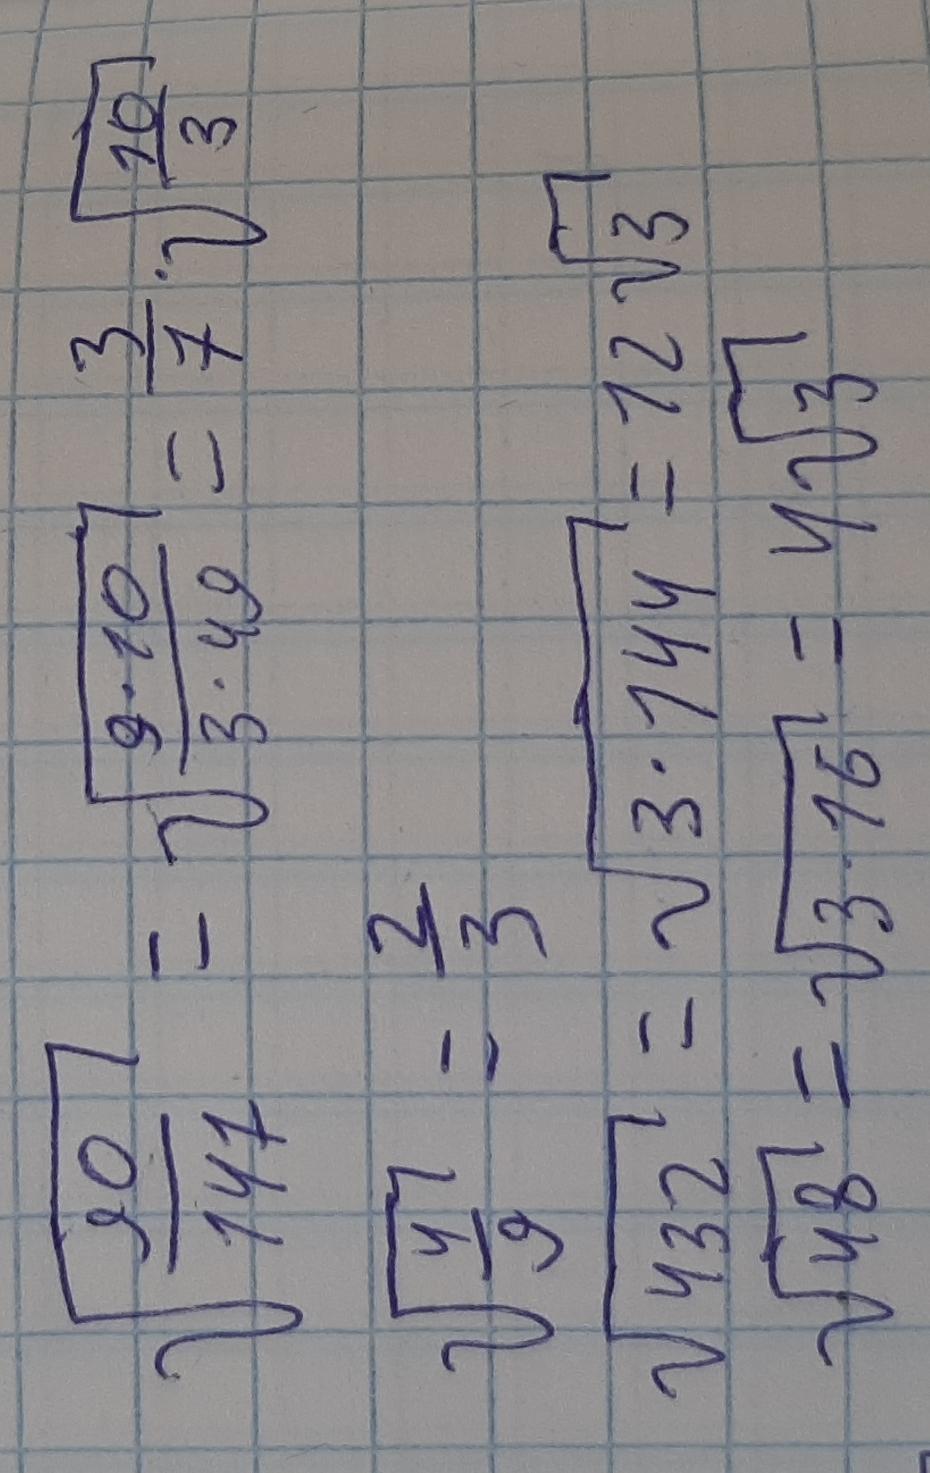 √(90/147) = √(9·10/3·49) = 3/7 · √(10/3)
√(4/9) = 2/3
√432 = √3·144 = 12√3
√48 = √3·16 = 4√3